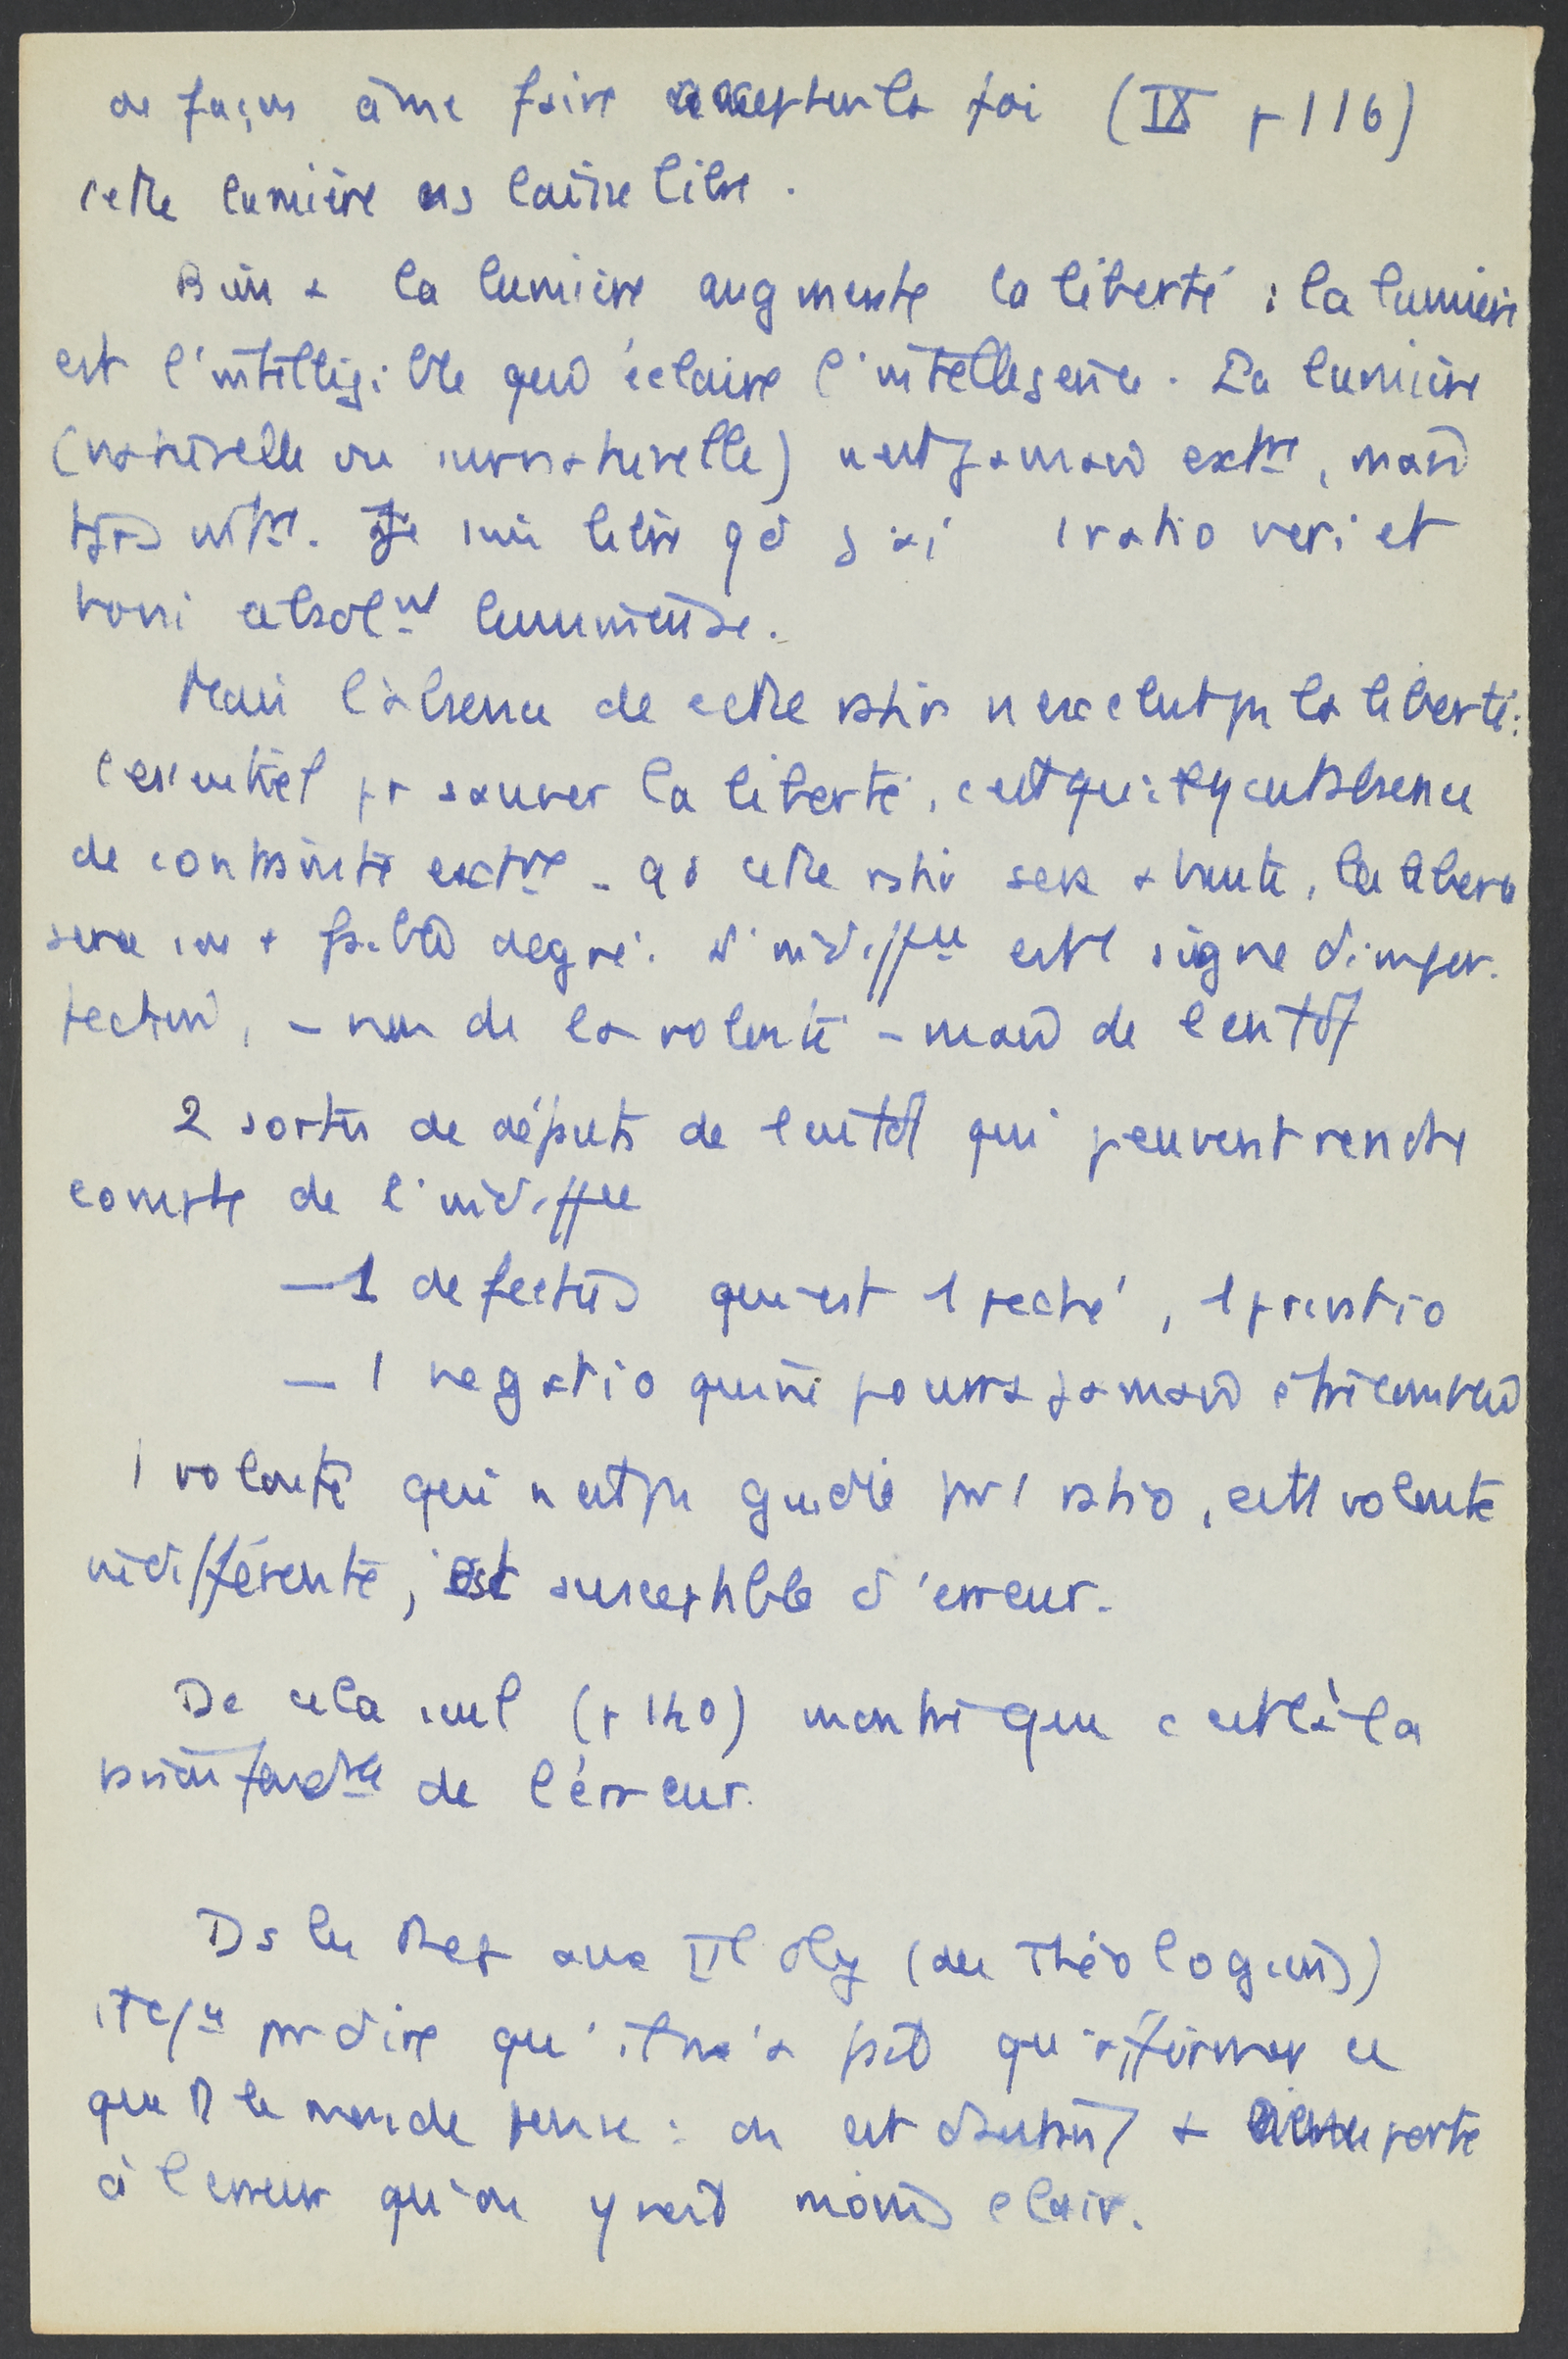 de façon à me faire accepter la foi (IX p 116)
cette lumière ns laisse libre.
Bien + la lumière augmente la liberté : la lumière
est l'intelligible qui éclaire l'intelligence. La lumière
(naturelle ou surnaturelle) n'est jamais extre, mais
tjrs intre. Je suis libre qd j'ai 1 ratio veri et
boni absolnt lumineuse.
Mais l'absence de cette ratio n'exclut pas la liberté :
l'essentiel pr sauver la liberté, c'est qu'il y eut absence
de contrainte extre. qd cette ratio sera absente, la liberté
sera son + faible degré. L'indiffce est 1 signe d'imper-
fection, - non de la volonté - mais de l'entdt
2 sortes de défauts de l'entdt qui peuvent rendre
compte de l'indiffce
- 1 defectus qui est 1 péché, 1 privatio
- 1 negatio qui ne pourra jamais être
1 volonté qui n'est pas guidée par 1 ratio, cette volonté
indifférente, est susceptible d'erreur.
De cela seul (p 140) montre que c'est là la
raison fondre de l'erreur.
Ds les Rep aux II obj (des Théologiens)
pr dire qu'il n'a fait qu'affirmer ce
que tt le monde pense : on est d'autant + porté
à l'erreur qu'on y voit moins clair.